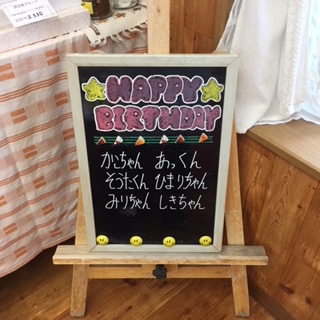 HAPPY
BIRTHDAY
かいちゃん あっくん
そうたくん ひまりちゃん
みりちゃん しきちゃん